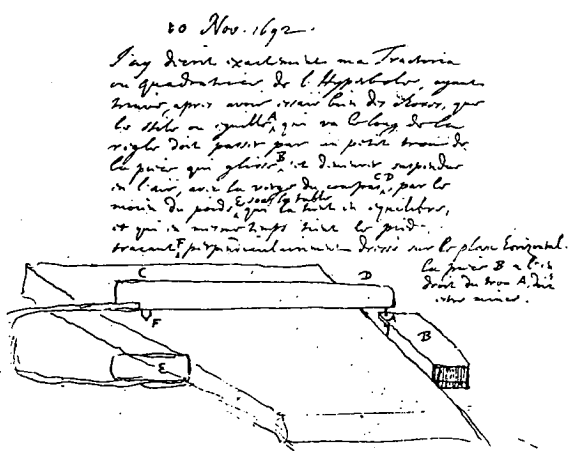 20 Nov. 1692.
J'ay decrit exactement ma Tractoria
ou quadratrice de l'Hyperbole, ayant
trouvè, apres avoir essaiè bien des choses, que
le stile ou eguille A, qui va le long de la
regle doit passer par un petit trou de
la piece qui glisse B, et demeurer suspendue
en l'air, avec la verge du compas CD, par le
moien du poids E sous la table, qui la tient en equilibre,
et qui en mesme temps tient le pied
tracant F perpendiculairement dressè sur le plan horizontal.
la piece B a l'en
droit du trou A, doit
estre mince.
C
D
F
B
E